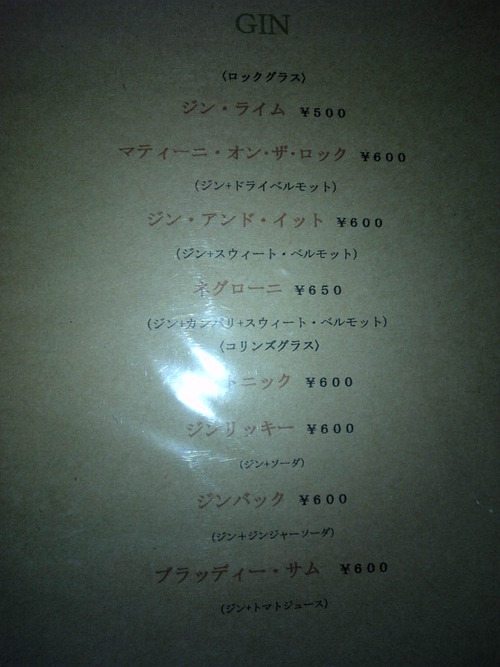 GIN
(ロックグラス)
ジン・ライム ￥500
マティーニ・オン・ザ・ロック ￥600
(ジン+ドライベルモット)
ジン・アンド・イット ￥600
(ジン+スウィート・ベルモット)
ネグローニ ￥650
(ジン+カンパリ+スウィート・ベルモット)
(コリンズグラス)
トニック ￥600
ジンリッキー ￥600
(ジン+ソーダ)
ジンバック ￥600
(ジン+ジンジャーソーダ)
ブラッディー・サム ￥600
(ジン+トマトジュース)